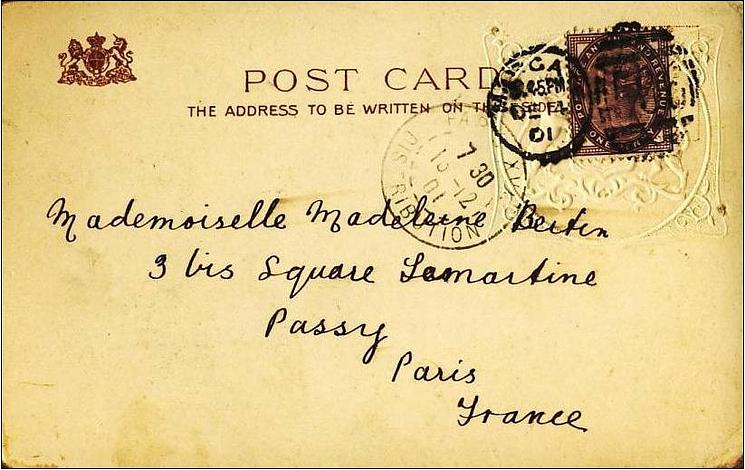 POST CARD
THE ADDRESS TO BE WRITTEN ON THIS SIDE
POSTAGE AND INLAND REVENUE
ONE PENNY
.45PM
DE
01
PARIS
7 30
12
01
DISTRIBUTION
Mademoiselle Madeleine Bertin
3 bis Square Lamartine
Passy
Paris
France